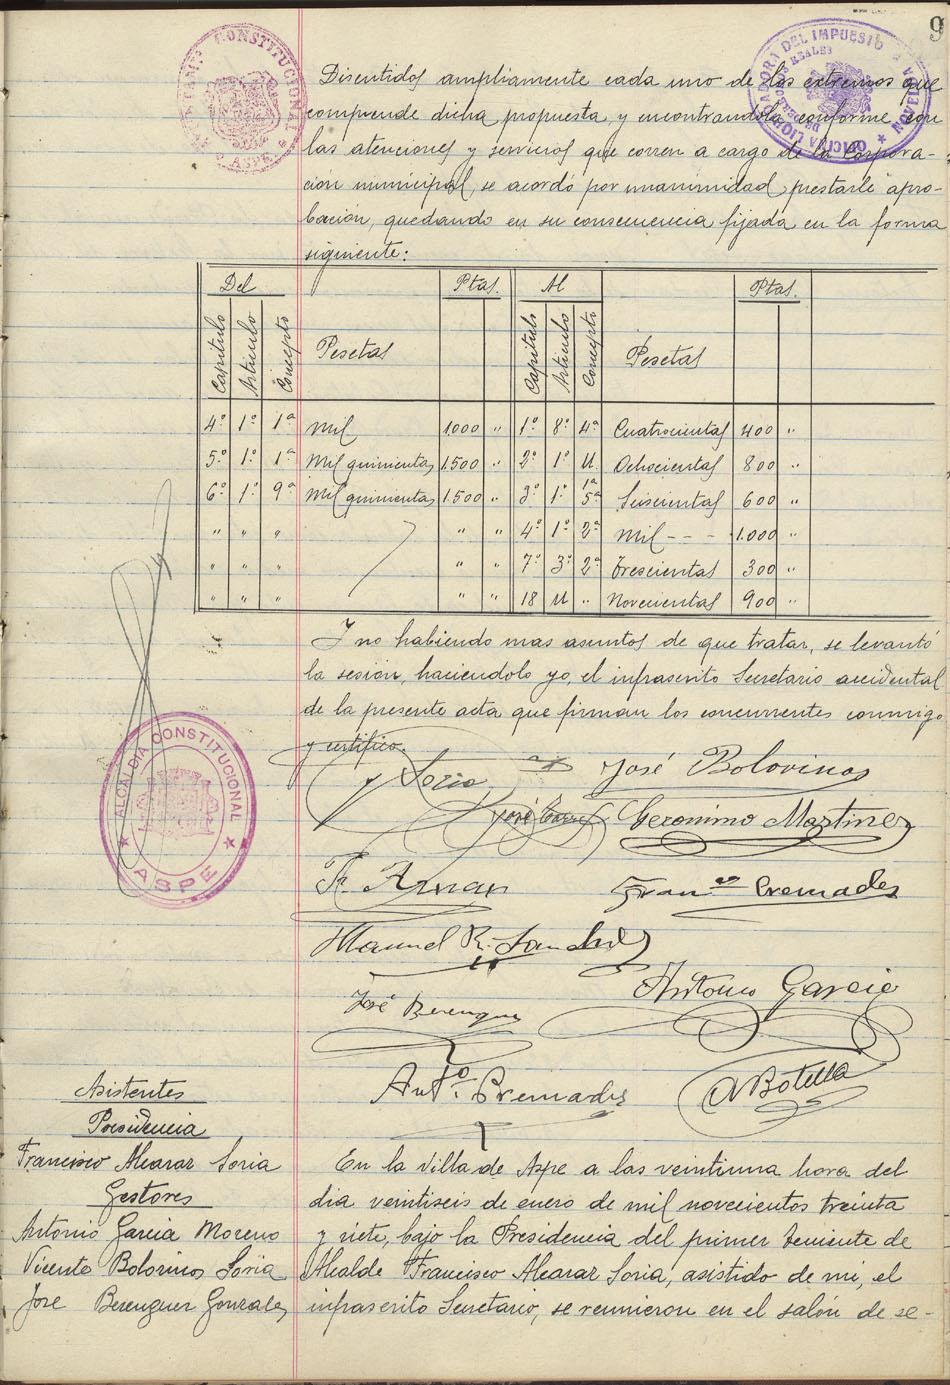 9
AYUNTAMTO CONSTITUCIONAL
ASPE
OFICINA LIQUIDADORA DEL IMPUESTO
DE DERECHOS REALES
NOVELDA
Discutidos ampliamente cada uno de los extremos que
comprende dicha propuesta, y encontrandola conforme con
las atenciones y servicios que corren a cargo de la Corpora-
ción municipal, se acordó por unanimidad prestarle apro-
bación, quedando en su consecuencia fijada en la forma
siguiente:
Del Ptas. Al Ptas.
Capítulo Artículo Concepto Pesetas Capítulo Artículo Concepto Pesetas
4º 1º 1ª Mil 1000 " 1º 8º 4ª Cuatrocientas 400 "
5º 1º 1ª Mil quinientas 1.500 " 2º 1º U. Ochocientas 800 "
6º 1º 9ª Mil quinientas 1.500 " 3º 1º 1ª 5ª Seiscientas 600 "
" " " " " 4º 1º 2ª Mil - - - 1.000 "
" " " " " 7º 3º 2ª Trescientas 300 "
" " " " " 18 U " Novecientas 900 "
Y no habiendo mas asuntos de que tratar, se levantó
la sesión, haciendolo yo, el infrascrito Secretario accidental
de la presente acta que firman los concurrentes conmigo
y certifico.
ALCALDIA CONSTITUCIONAL
ASPE
Soria José Bolovinos
José Geronimo Martinez
Fr. Aznar Franco Cremades
Manuel R. Sanchez
Antonio Garcia
José Berenguer
Anto. Cremades A Botella
Asistentes
Presidencia
Francisco Alcaraz Soria
Gestores
Antonio Garcia Moreno
Vicente Bolorinos Soria
Jose Berenguer Gonzalez
En la villa de Aspe a las veintiuna hora del
dia veintiseis de enero de mil novecientos treinta
y siete, bajo la Presidencia del primer teniente de
Alcalde Francisco Alcaraz Soria, asistido de mi, el
infrascrito Secretario, se reunieron en el salón de se-